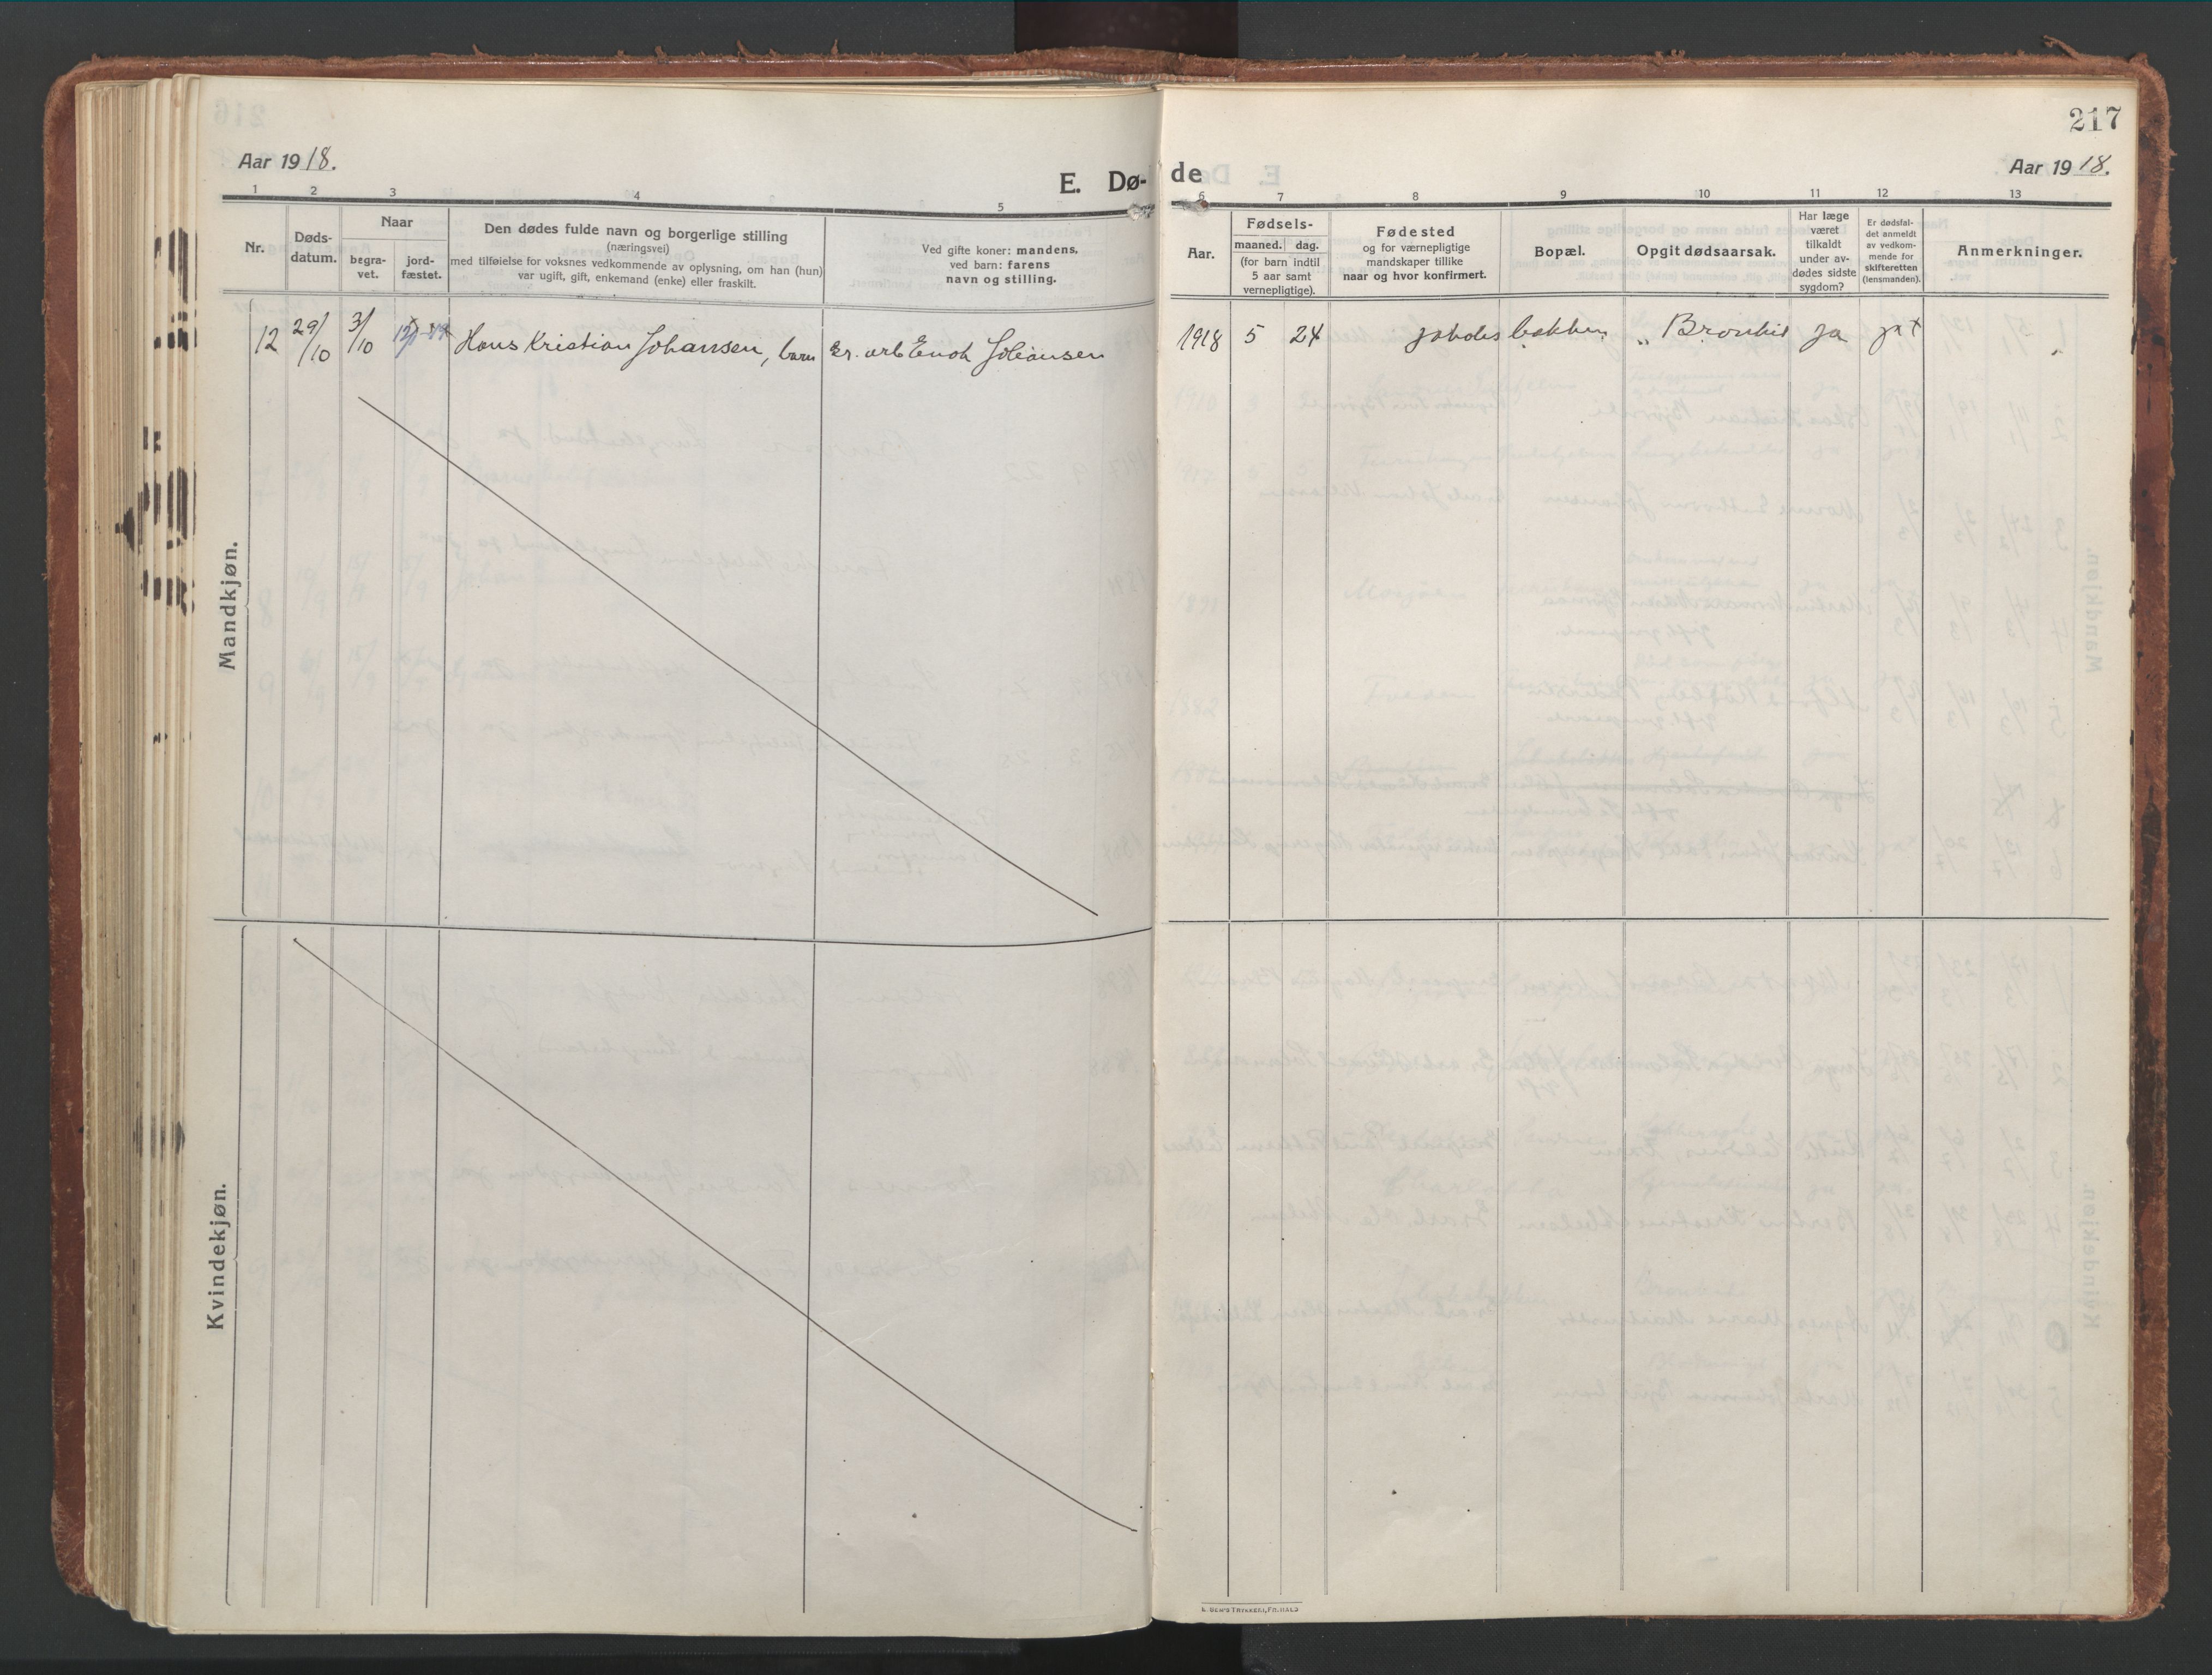 217
Aar 1918.
E. Dø-
de
Aar 1918.
1 2 3 4 5 6 7 8 9 10 11 12 13
Nr.
Døds-
datum.
Naar
begra-
vet.
jord-
fæstet.
Den dødes fulde navn og borgerlige stilling
(næringsvei)
med tilføielse for voksnes vedkommende av oplysning, om han (hun)
var ugift, gift, enkemand (enke) eller fraskilt.
Ved gifte koner: mandens,
ved barn: farens
navn og stilling.
Aar.
Fødsels-
maaned. dag.
(for barn indtil
5 aar samt
vernepligtige).
Fødested
og for værnepligtige
mandskaper tillike
naar og hvor konfirmert.
Bopæl.
Opgit dødsaarsak.
Har læge
været
tilkaldt
under av-
dødes sidste
sygdom?
Er dødsfal-
det anmeldt
av vedkom-
mende for
skifteretten
(lensmanden).
Anmerkninger.
12 29/10 3/10 Hans Kristian Johansen, barn Gr. arb Enok Johansen 1918 5 24 bakken „ Bronkit ja ja
Mandkjøn.
Kvindekjøn.